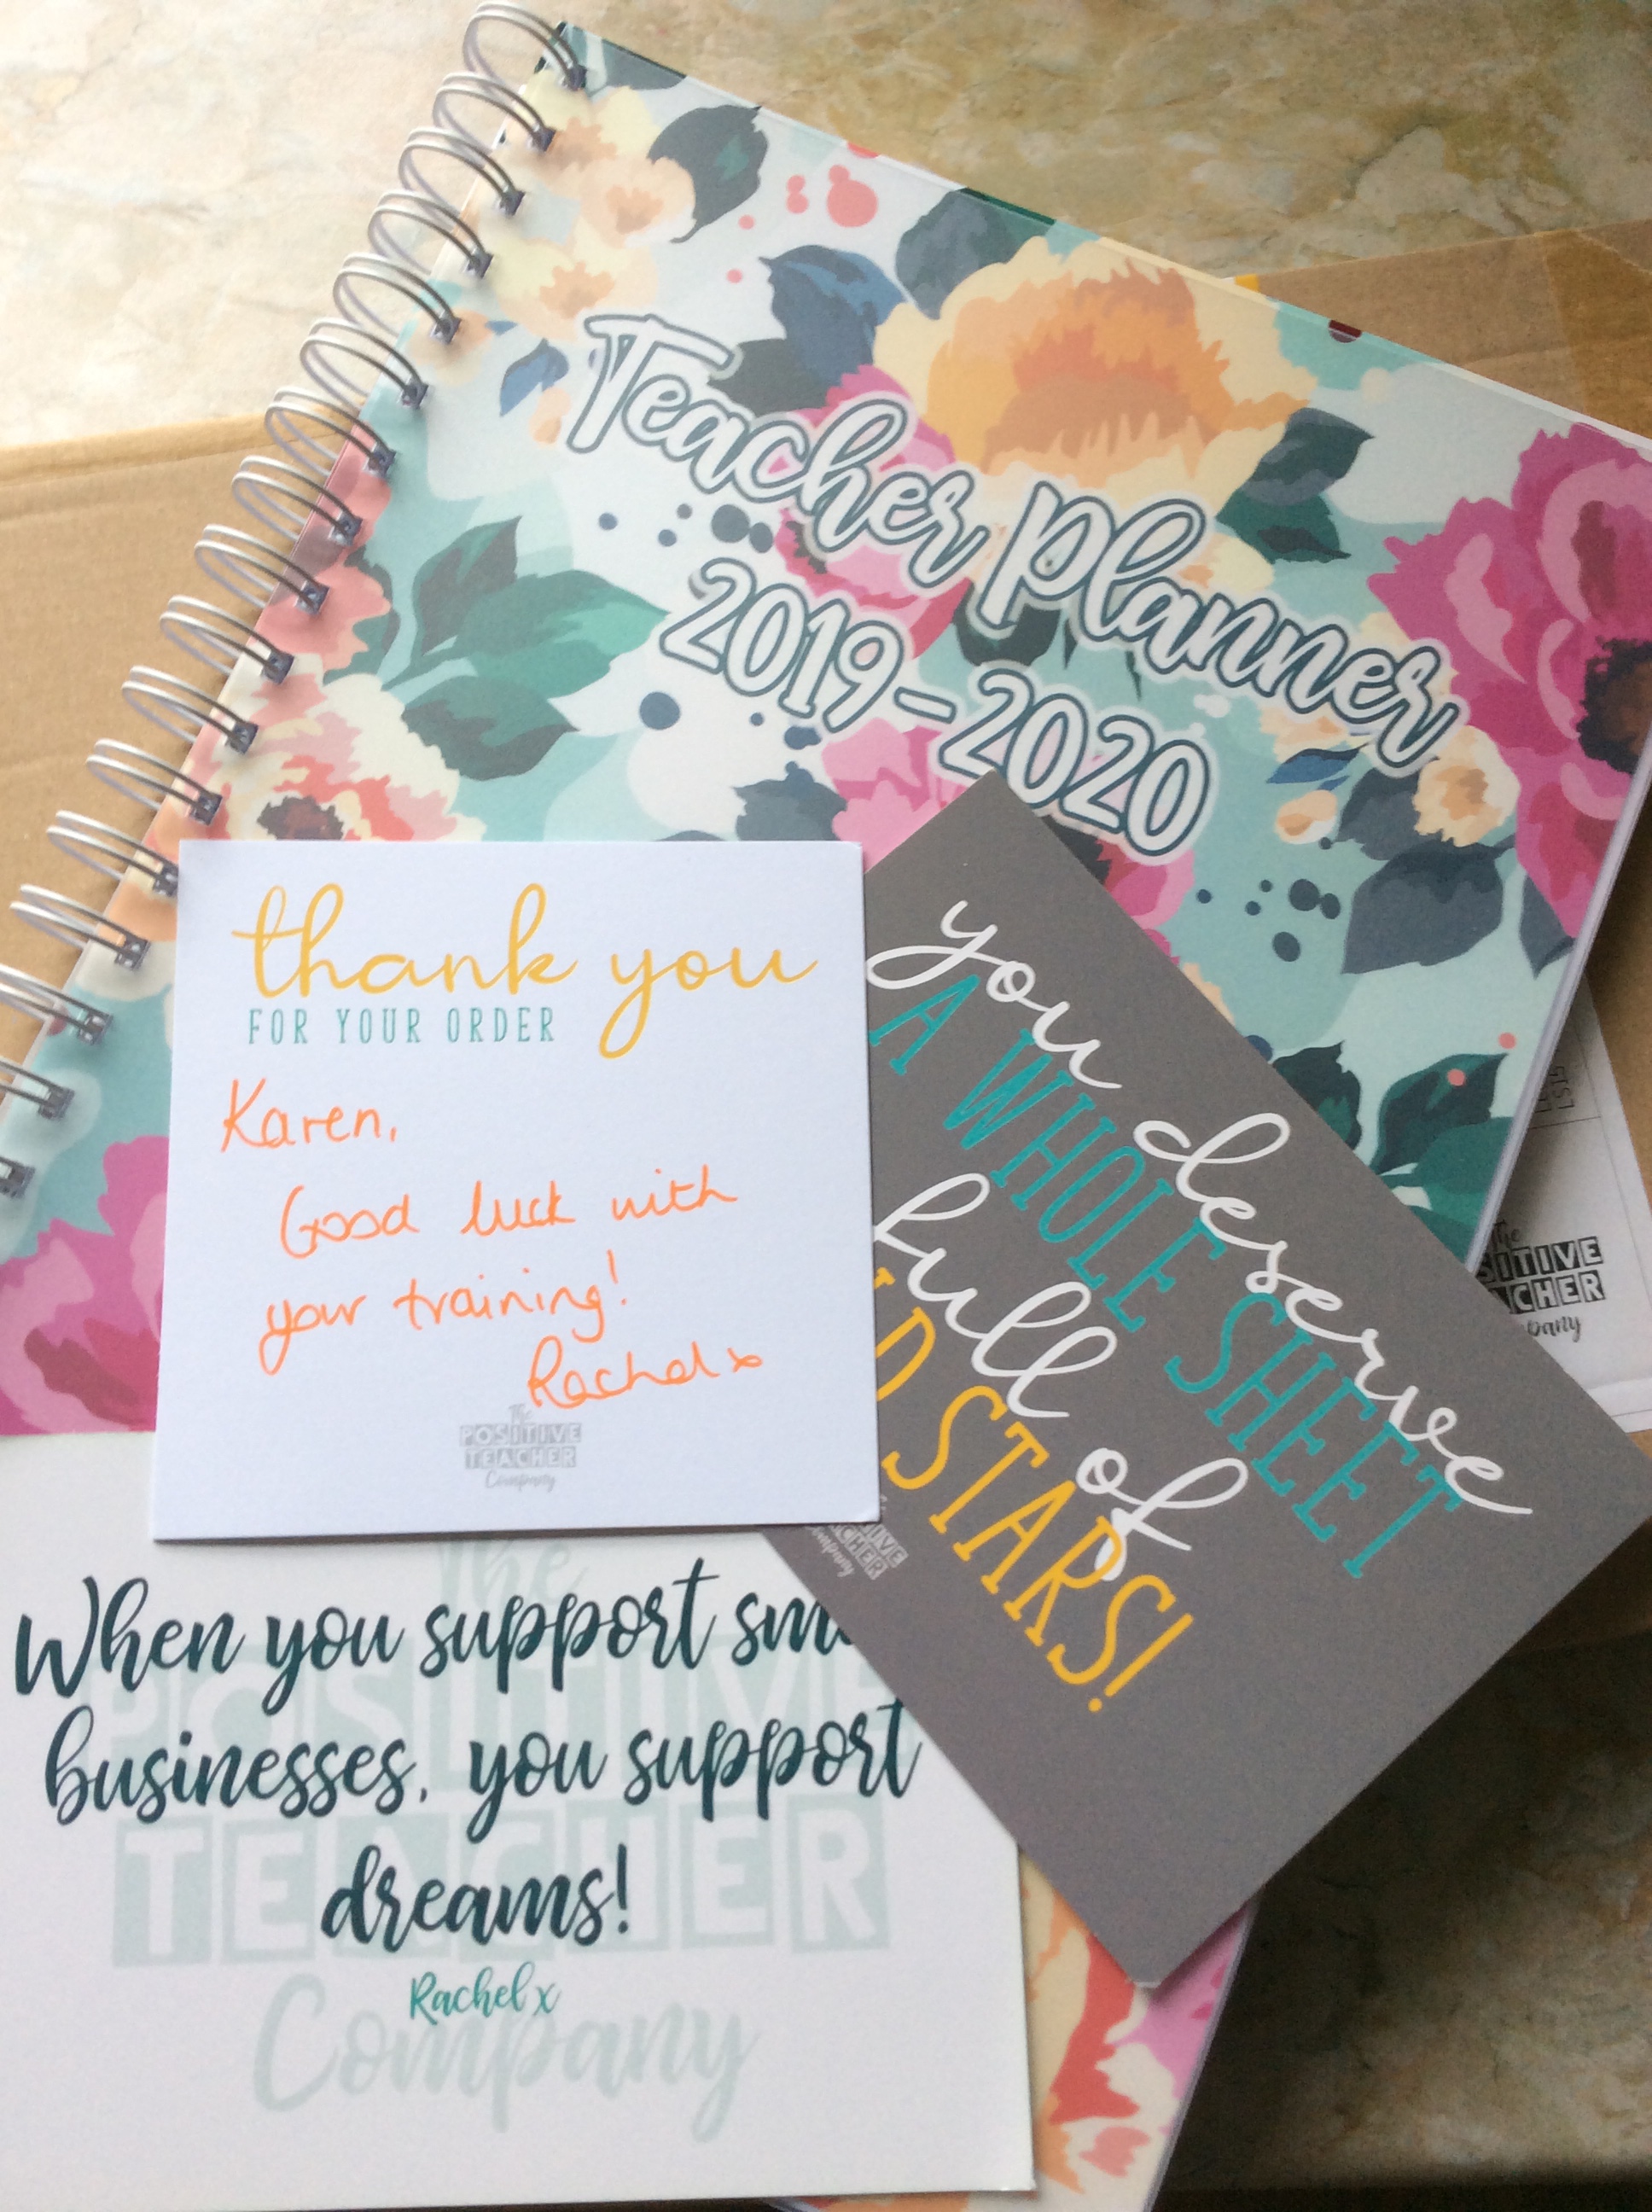 Teacher Planner
2019-2020
thank you
FOR YOUR ORDER
Karen,
Good luck with
your training!
Rachel x
The
POSITIVE
TEACHER
Company
you deserve
A WHOLE SHEET
full of
STARS!
The
POSITIVE
TEACHER
Company
When you support
businesses, you support
dreams!
Rachel x
The
POSITIVE
TEACHER
Company